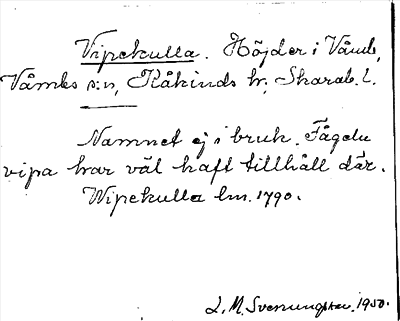 Vipekulla. Höjder i Våmb,
Våmbs s:n, Kåkinds hr, Skarab. l.
Namnet ej i bruk. Fågeln
vipa har väl haft tillhåll där.
Wipekulla lm. 1790.
L. M. Svenungsson. 1950.